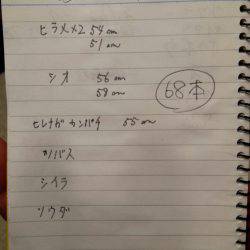 ヒラメ×2 54cm
51cm
シオ 56cm
58cm
68本
ヒレナガカンパチ 55cm
カンパス
シイラ
ソウダ